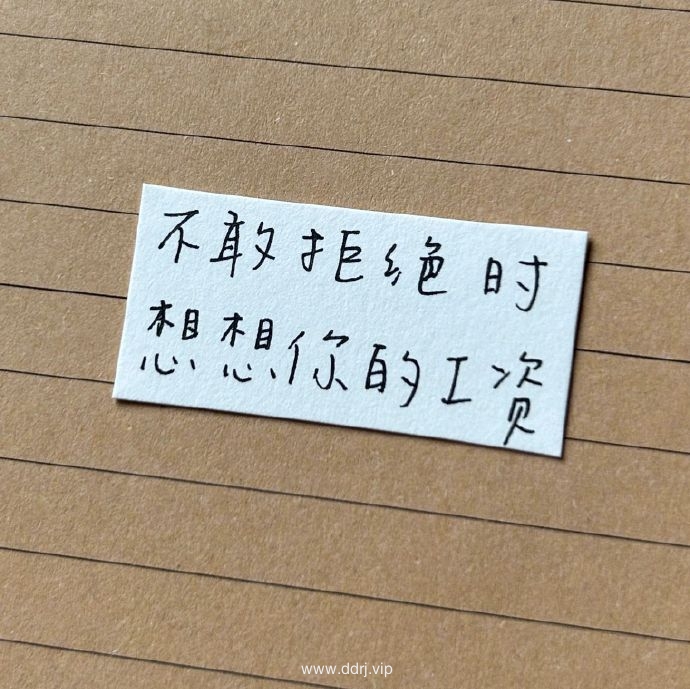 不敢拒绝时
想想你的工资
www.ddrj.vip